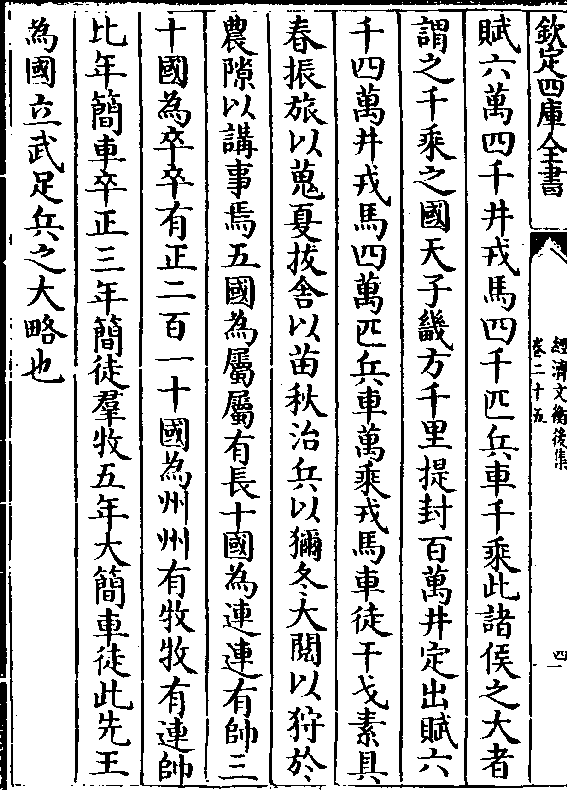 欽定四庫全書
經濟文衡後集
卷二十五
四
賦六萬四千井戎馬四千匹兵車千乘此諸侯之大者
謂之千乘之國天子畿方千里提封百萬井定出賦六
千四萬井戎馬四萬匹兵車萬乘戎馬車徒干戈素具
春振旅以蒐夏拔舍以苗秋治兵以獮冬大閱以狩於
農隙以講事焉五國為屬屬有長十國為連連有帥三
十國為卒卒有正二百一十國為州州有牧牧有連帥
比年簡車卒正三年簡徒羣牧五年大簡車徒此先王
為國立武足兵之大略也